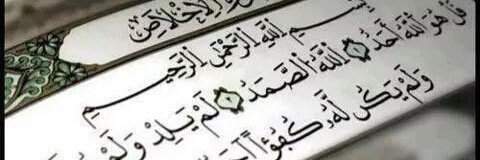 الْإِخْلَاصِ
بِسْمِ اللَّهِ الرَّحْمَٰنِ الرَّحِيمِ
قُلْ هُوَ اللَّهُ أَحَدٌ ۝ اللَّهُ الصَّمَدُ ۝ لَمْ يَلِدْ وَلَمْ
وَلَمْ يَكُن لَّهُ كُفُوًا